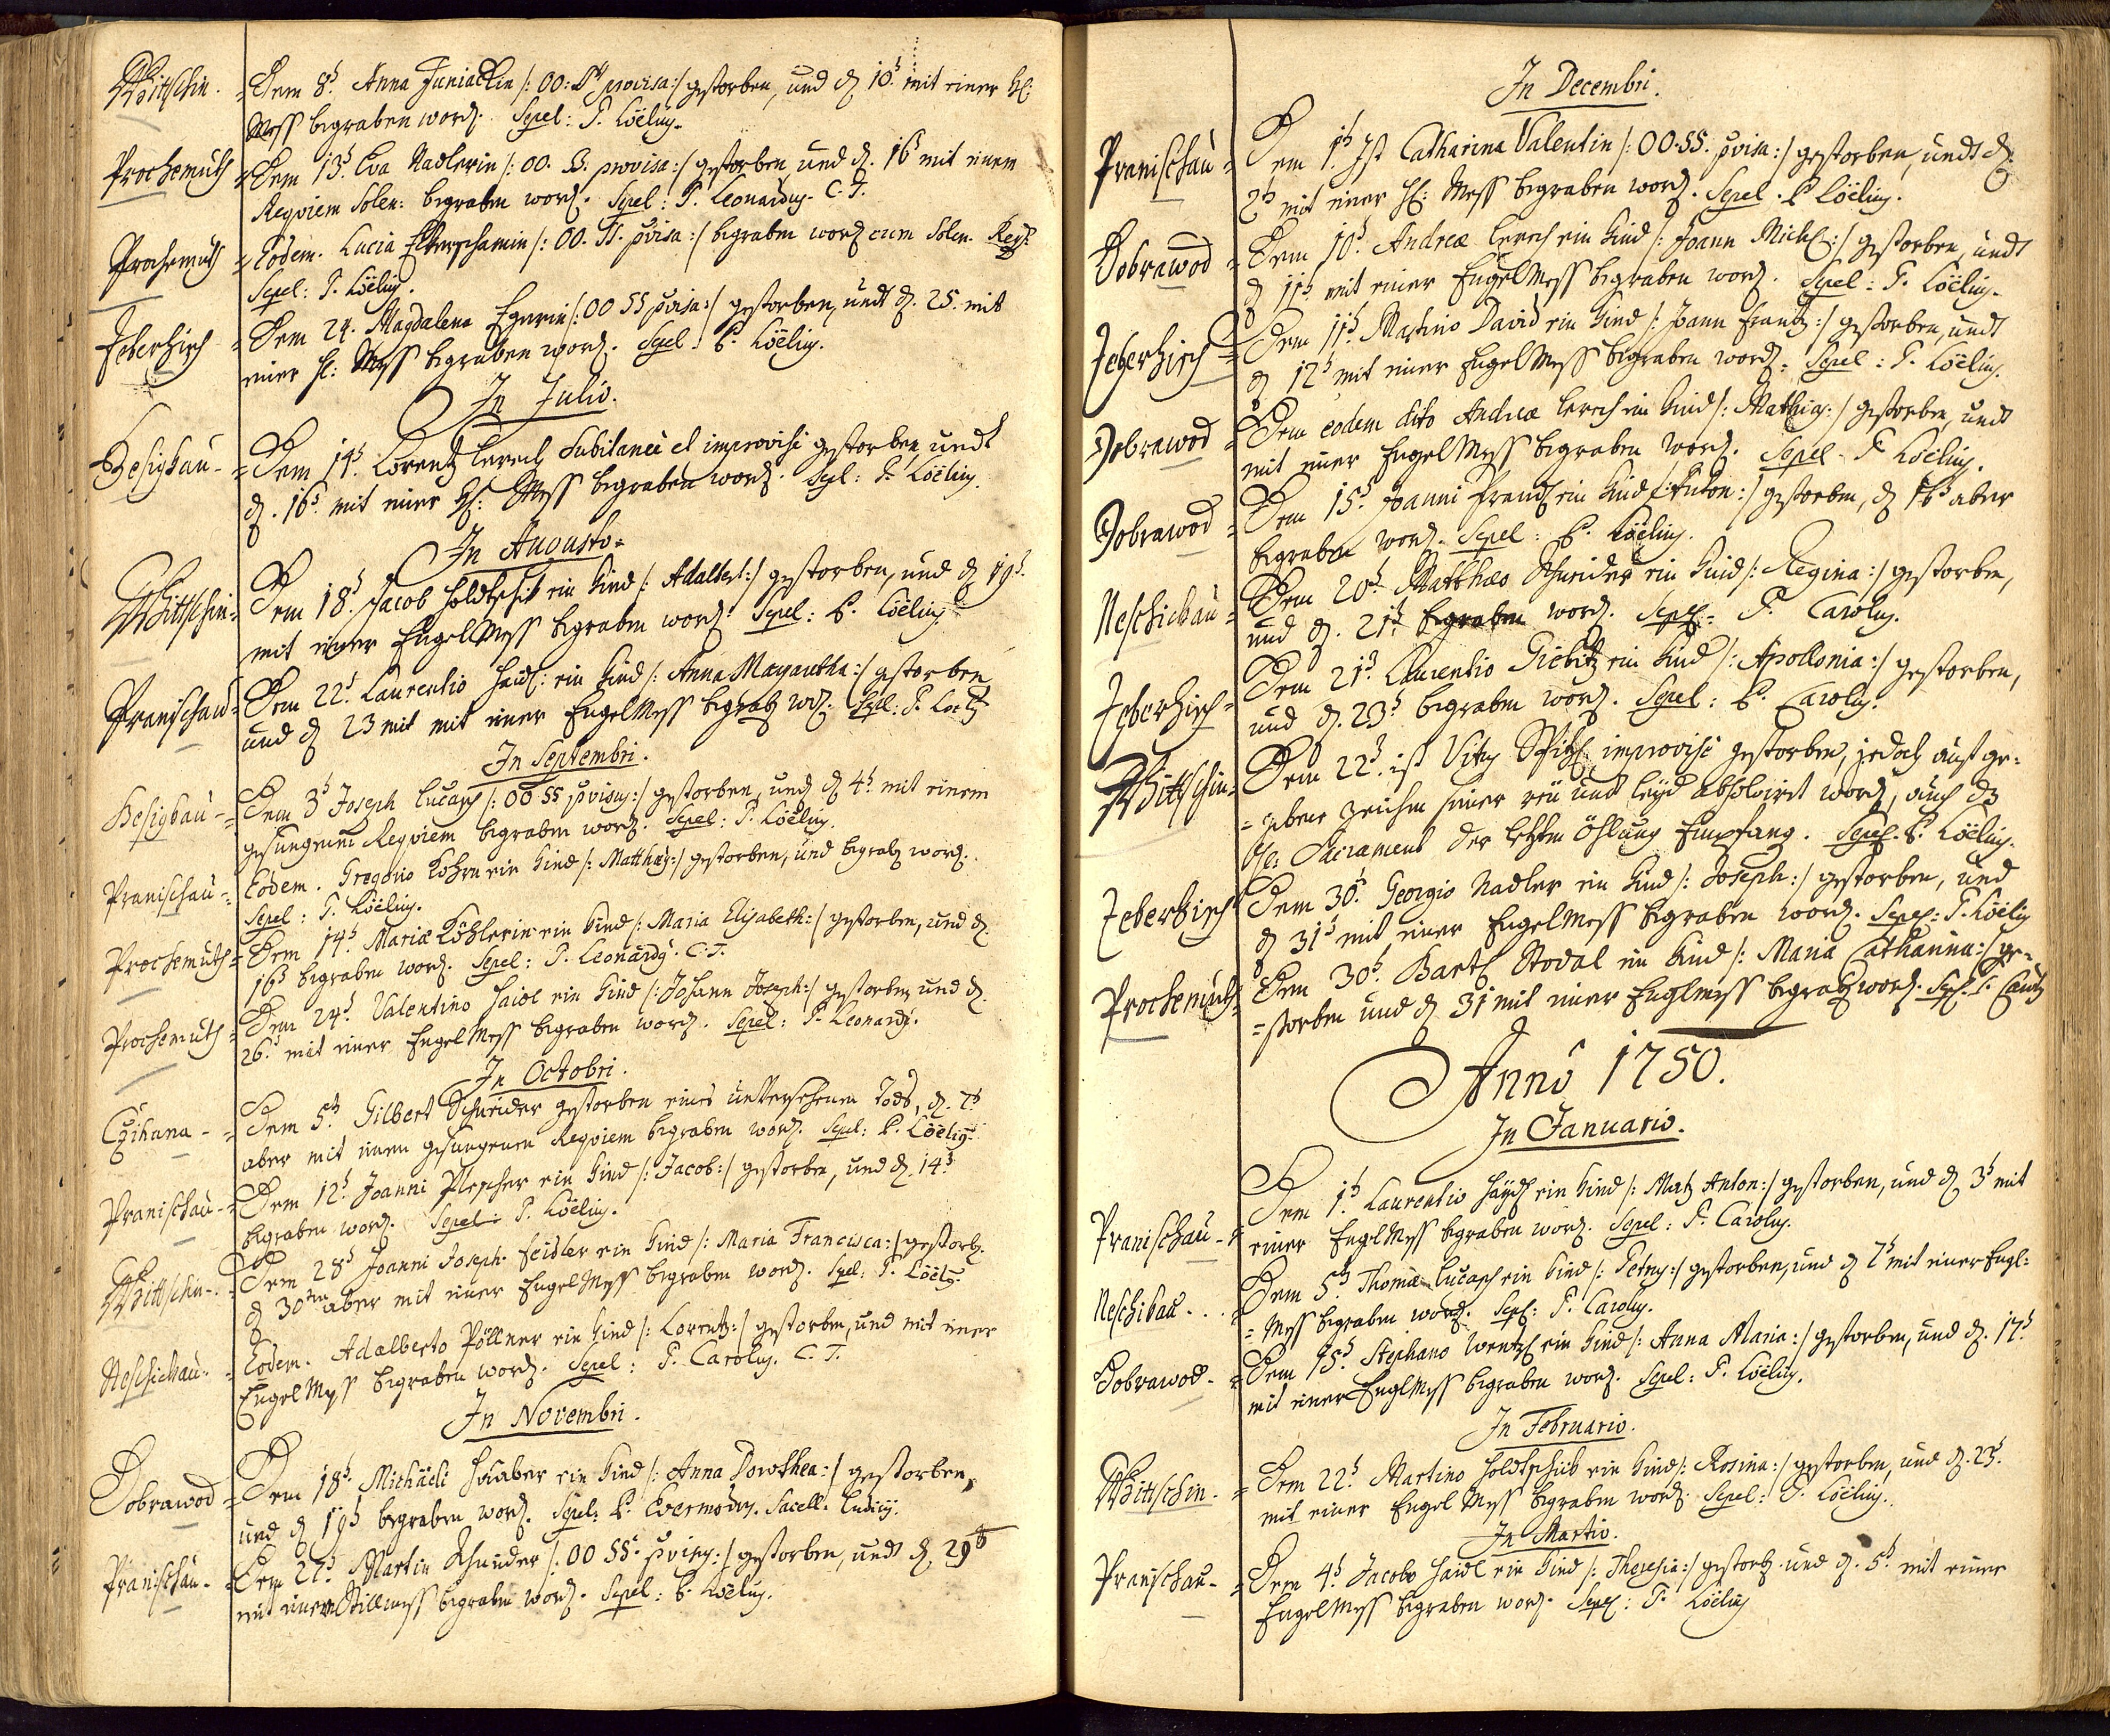 Wittschin. = Dem 8t. Anna Juniackin /: OO: SS provisa :/ gestorben, und d. 10t. mit einer hl:
Mess begraben word. Sepel: P. Loëlius.
Prochemuth = Dem 13t. Eva Nadlerin /: OO. SS. provisa :/ gestorben und d. 16t mit einem
Reqviem Solen: begraben word. Sepel: P. Leonardus. C. T.
Prochemuth = Eodem. Lucia /: OO. SS. pvisa :/ begraben word cum Solen. Reqv:
Sepel: P. Loëlius.
Zeberhisch = Dem 24. Magdalena Egerin /: OO SS pvisa :/ gestorben, undt d. 25. mit
einer hl: Mess begraben word. Sepel. P. Loëlius.
In Julio.
Hesigkau - = Dem 14t. Lorentz Lerch Subitanei et improvisi gestorben, undt
d. 16t. mit einer hl: Mess begraben word. Sepl: P. Loëlius.
In Augusto.
Wittschin = Dem 18t. Jacob Holdtschik ein Kind /: Adalbert :/ gestorben, und d 19t.
mit einer Engel Mess begraben word. Sepel: P. Loëlius
Pranischau = Dem 22t. Laurentio Haidl: ein Kind /: Anna Margaretha :/ gestorben
und d 23 mit mit einer Engel Mess begrab word. Sepel: P. Loëlius
In Septembri.
Hesigkau - = Dem 3t Joseph Lucasch /: OO SS pvisus :/ gestorben, und d 4t. mit einem
gesungenen Reqviem begraben word. Sepel: P. Loëlius.
Pranischau - = Eodem. Gregorio Kohrn ein Kind /: Matthæus :/ gestorben, und begrab word.
Sepel: P. Loëlius.
Prochemuth = Dem 14t Mariæ Köhlerin ein Kind /: Maria Elisabeth :/ gestorben, und d.
16t begraben word. Sepel: P. Leonardus. C. T.
Prochemuth = Dem 24t. Valentino Haidl ein Kind /: Johann Joseph :/ gestorben und d.
26t mit einer Engel Mess begraben word. Sepel: P. Leonardus.
In Octobri.
Czihana - = Dem 5t. Gilbert Schneider gestorben eines unversehenen Tods, d. 7t
aber mit einem gesungenen Reqviem begraben word. Sepel: P. Loëlius.
Pranischau - = Dem 12t. Joanni Plescher ein Kind /: Jacob :/ gestorben, und d. 14t
begraben word. Sepel: P. Loëlius.
Wittschin - = Dem 28t Joanni Joseph Feidler ein Kind /: Maria Francisca :/ gestorb.
d 30ten aber mit einer Engel Mess begraben word. Sepel: P. Loëlius.
Neschickau. = Eodem. Adalberto Pöllner ein Kind /: Lorentz :/ gestorben, und mit einer
Engel Mess begraben word. Sepel: P. Carolus. C. T.
In Novembri.
Dobrawod = Dem 18t. Michäeli ein Kind /: Anna Dorothea :/ gestorben,
und d 19t begraben word. Sepel: P. Evermodus. Sacell.
Pranischau - = Dem 27t. Martin Schneider /: OO SS. pvisus :/ gestorben, undt d. 29t
mit einer Stillmess begraben word. Sepel: P. Loëlius.
In Decembri.
Pranischau = Dem 1t. Ist Catharina Valentin /: OO. SS. pvisa :/ gestorben, undt d.
2t mit einer hl: Mess begraben word. Sepel. P Loëlius.
Dobrawod = Dem 10t. Andreæ Lerch ein Kind /: Joann Michl :/ gestorben, undt
d 11t mit einer Engel Mess begraben word. Sepel: P. Loëlius.
Zeberhisch = Dem 11t Martino David ein Kind /: Joann Frantz :/ gestorben, undt
d 12t mit einer Engel Mess begraben word. Sepel: P. Loëlius.
Dobrawod = Dem eodem dito Andreæ Lerch ein Kind /: Mathias :/ gestorben, undt
mit einer Engel Mess begraben word. Sepel. P Loëlius.
Dobrawod = Dem 15t. Joanni Frandl ein Kind /: Anton :/ gestorben, d 16t aber
begraben word. Sepel: P. Loëlius.
Neschickau = Dem 20t Matthæo Schneider ein Kind /: Regina :/ gestorben,
und d. 21t. begraben word. Sepel: P. Carolus.
Zeberhisch = Dem 21t. Laurentio Giebitz ein Kind /: Apollonia :/ gestorben,
und d. 23t begraben word. Sepel: P. Carolus.
Wittschin = Dem 22t. ist Vitus Spitzl improvisi gestorben, jedoch auf ge:
= gebene Zeichen seiner reü und leyd absolvirt word, auch dz
hl: Sacrament der letzten Öhlung Empfang. Sepel. P. Loëlius.
Zeberhisch Dem 30t. Georgio Nadler ein Kind /: Joseph :/ gestorben, und
d 31t mit einer Engel Mess begraben word. Sepel: P. Loëlius
Prochemuth = Dem 30t. Bartl Stodal ein Kind /: Maria Catharina :/ ge=
= storben und d 31 mit einer Englmess begrab word. Sepl. P.
Anno 1750.
In Januario.
Pranischau - = Dem 1t. Laurentio Haydl ein Kind /: Matz Anton :/ gestorben, und d 3t mit
einer Engel Mess begraben word. Sepel: P. Carolus.
Neschikau - .. = Dem 5t. Thomæ Lucasch ein Kind /: Petrus :/ gestorben, und d 7t mit einer Engl:
= Mess begraben word. Sepel: P. Carolus.
Dobrawod - = Dem 15t. Stephano Wentzl ein Kind /: Anna Maria :/ gestorben, und d. 17t.
mit einer Engl Mess begraben word. Sepel: P. Loëlius.
In Februario.
Wittschin. = Dem 22t. Martino Holdtschick ein Kind /: Rosina :/ gestorben, und d. 23t.
mit einer Engel Mess begraben word. Sepel: P. Loëlius.
In Martio.
Pranischau - = Dem 4t. Jacobo Haidl ein Kind /: Theresia :/ gestorb. und d. 5t. mit einer
Engel Mess begraben word. Sepel: P. Loëlius